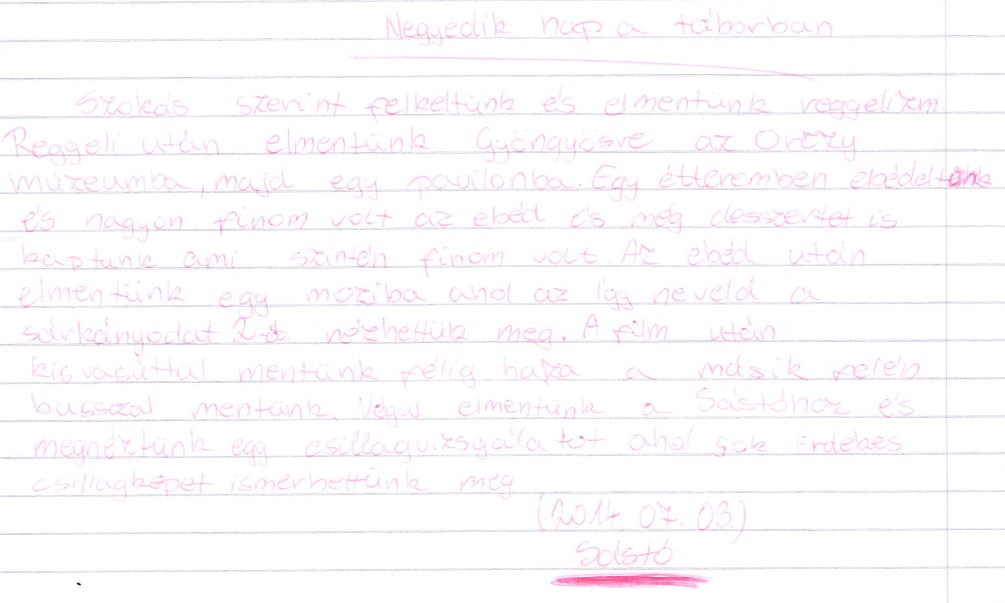 Negyedik nap a táborban
Szokás szerint felkeltünk és elmentünk reggelizni.
Reggeli után elmentünk Gyöngyösre az Orczy
múzeumba, majd egy pavilonba. Egy étteremben ebédeltünk
és nagyon finom volt az ebéd és még desszertet is
kaptunk ami szintén finom volt. Az ebéd után
elmentünk egy moziba ahol az Így neveld a
sárkányodat 2-t. nézhettük meg. A film után
kisvasúttal mentünk félig haza a másik felén
busszal mentünk. Végül elmentünk a Sástóhoz és
megnéztünk egy csillagvizsgálatot ahol sok érdekes
csillagképet ismerhettünk meg
(2014. 07. 03.)
Sástó